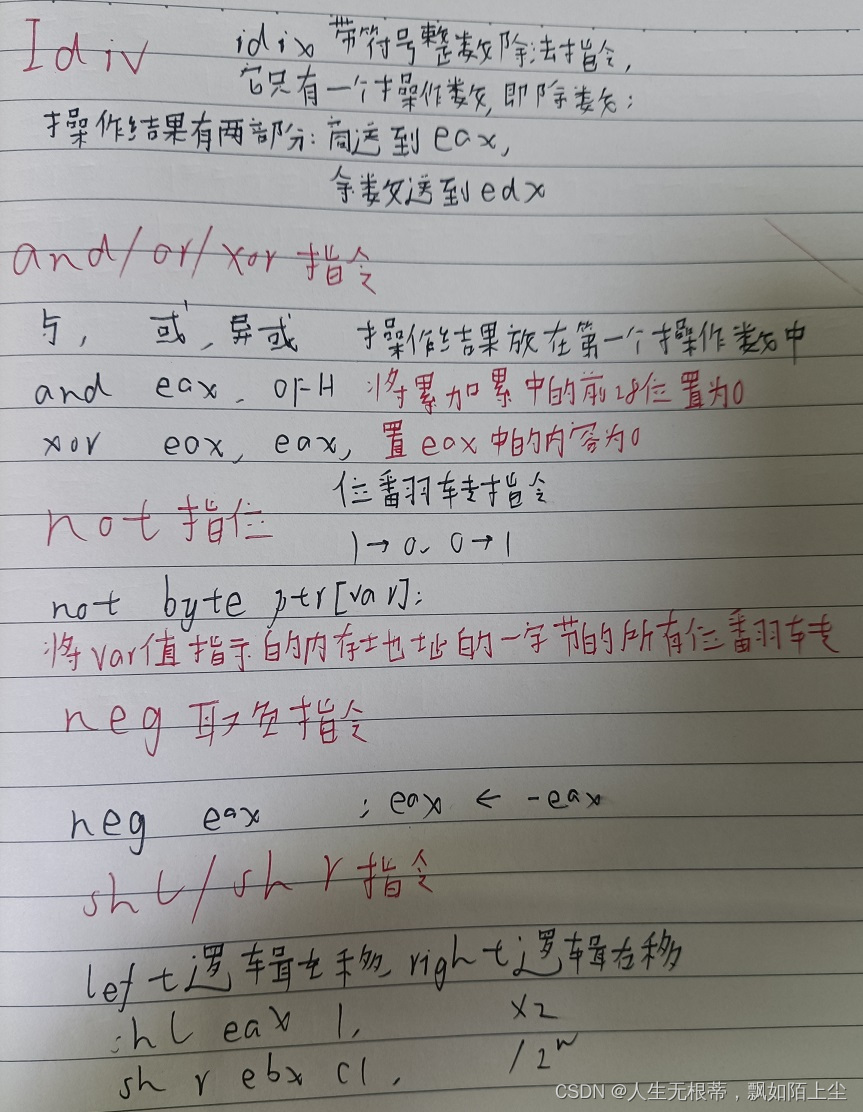 Idiv
idix 带符号整数除法指令,
它只有一个操作数,即除数;
操作结果有两部分:商送到eax,
余数送到edx
and/or/xor 指令
与, 或, 异或 操作结果放在第一个操作数中
and eax, 0FH 将累加累中的前28位置为0
xor eax, eax, 置eax中的内容为0
not 指位 位翻转指令
1→0, 0→1
not byte ptr[var];
将var值指示的内存地址的一字节的所有位翻转
neg 取负指令
neg eax ; eax ← -eax
shl/shr 指令
left逻辑左移, right逻辑右移
shl eax 1, x2
shr ebx cl, /2ⁿ
CSDN @人生无根蒂,飘如陌上尘